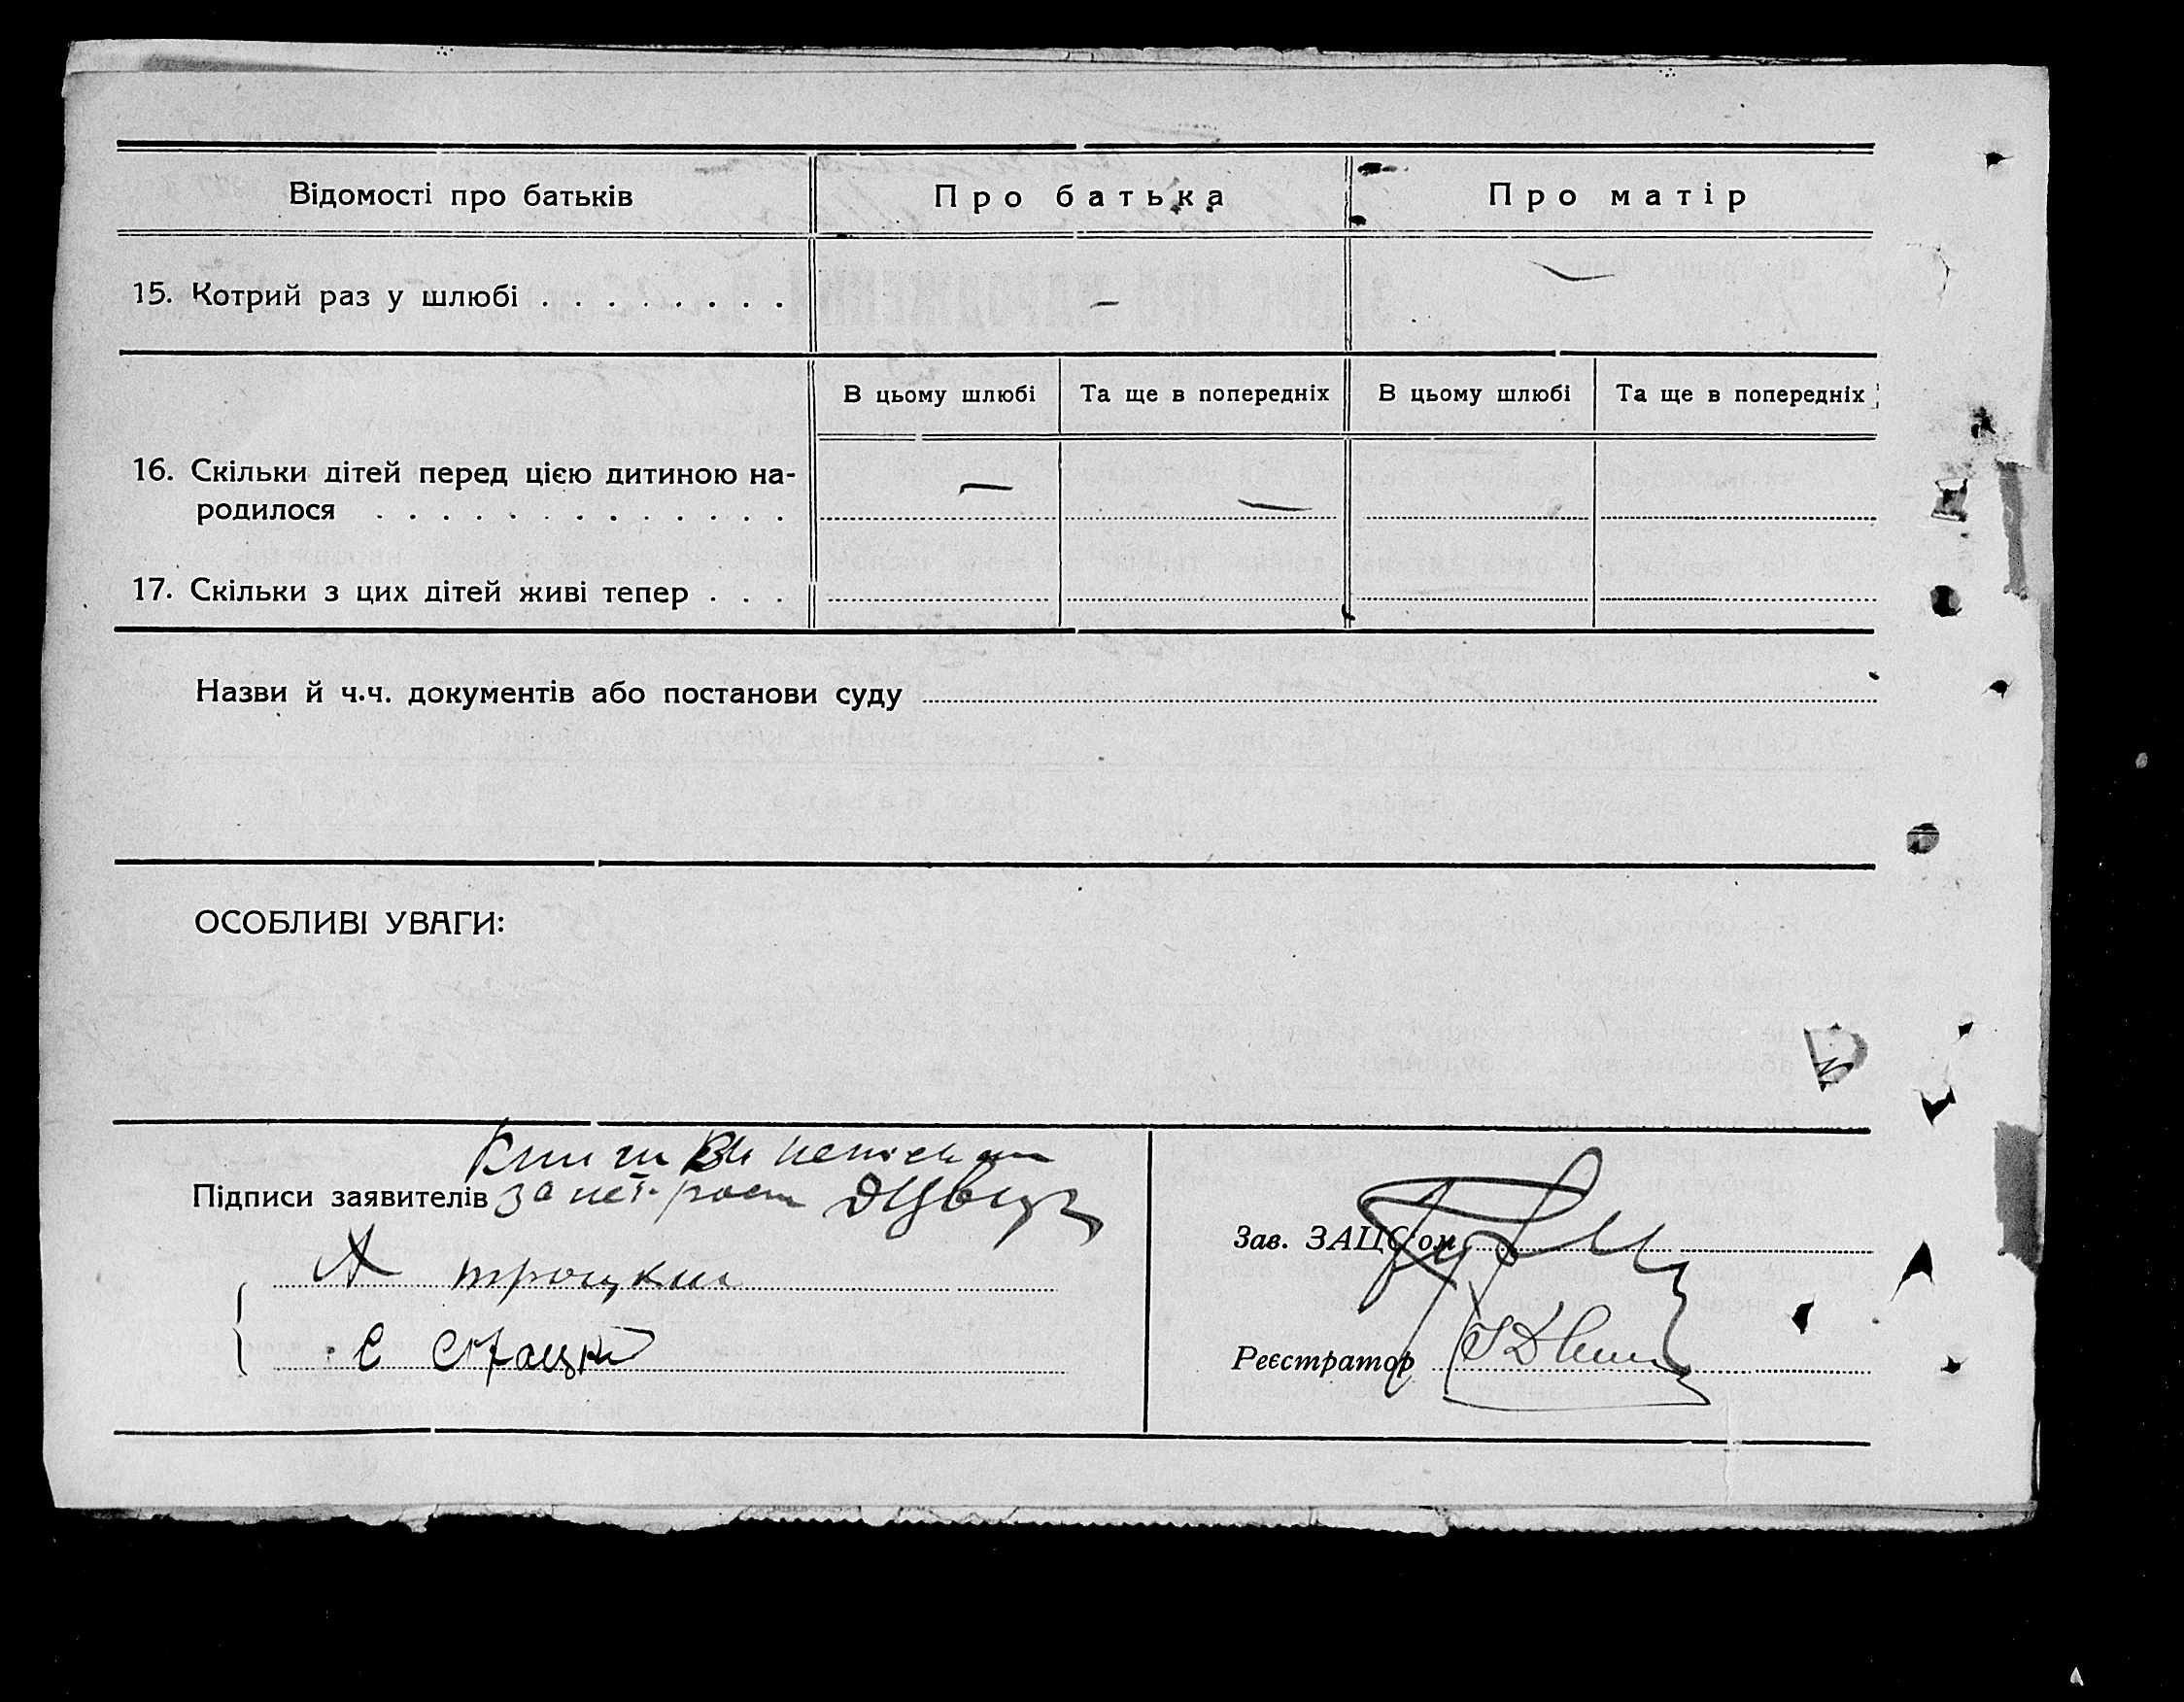 Відомості про батьків
Про батька
Про матір
15. Котрий раз у шлюбі . . . . . . . .
–
–
В цьому шлюбі
Та ще в попередніх
В цьому шлюбі
Та ще в попередніх
16. Скільки дітей перед цією дитиною на-
родилося . . . . . . . . . . . . .
–
–
17. Скільки з цих дітей живі тепер . . .
Назви й ч.ч. документів або постанови суду
ОСОБЛИВІ УВАГИ:
Підписи заявителів
А троцкий
Зав. ЗАЦС'ом
Е
Реєстратор